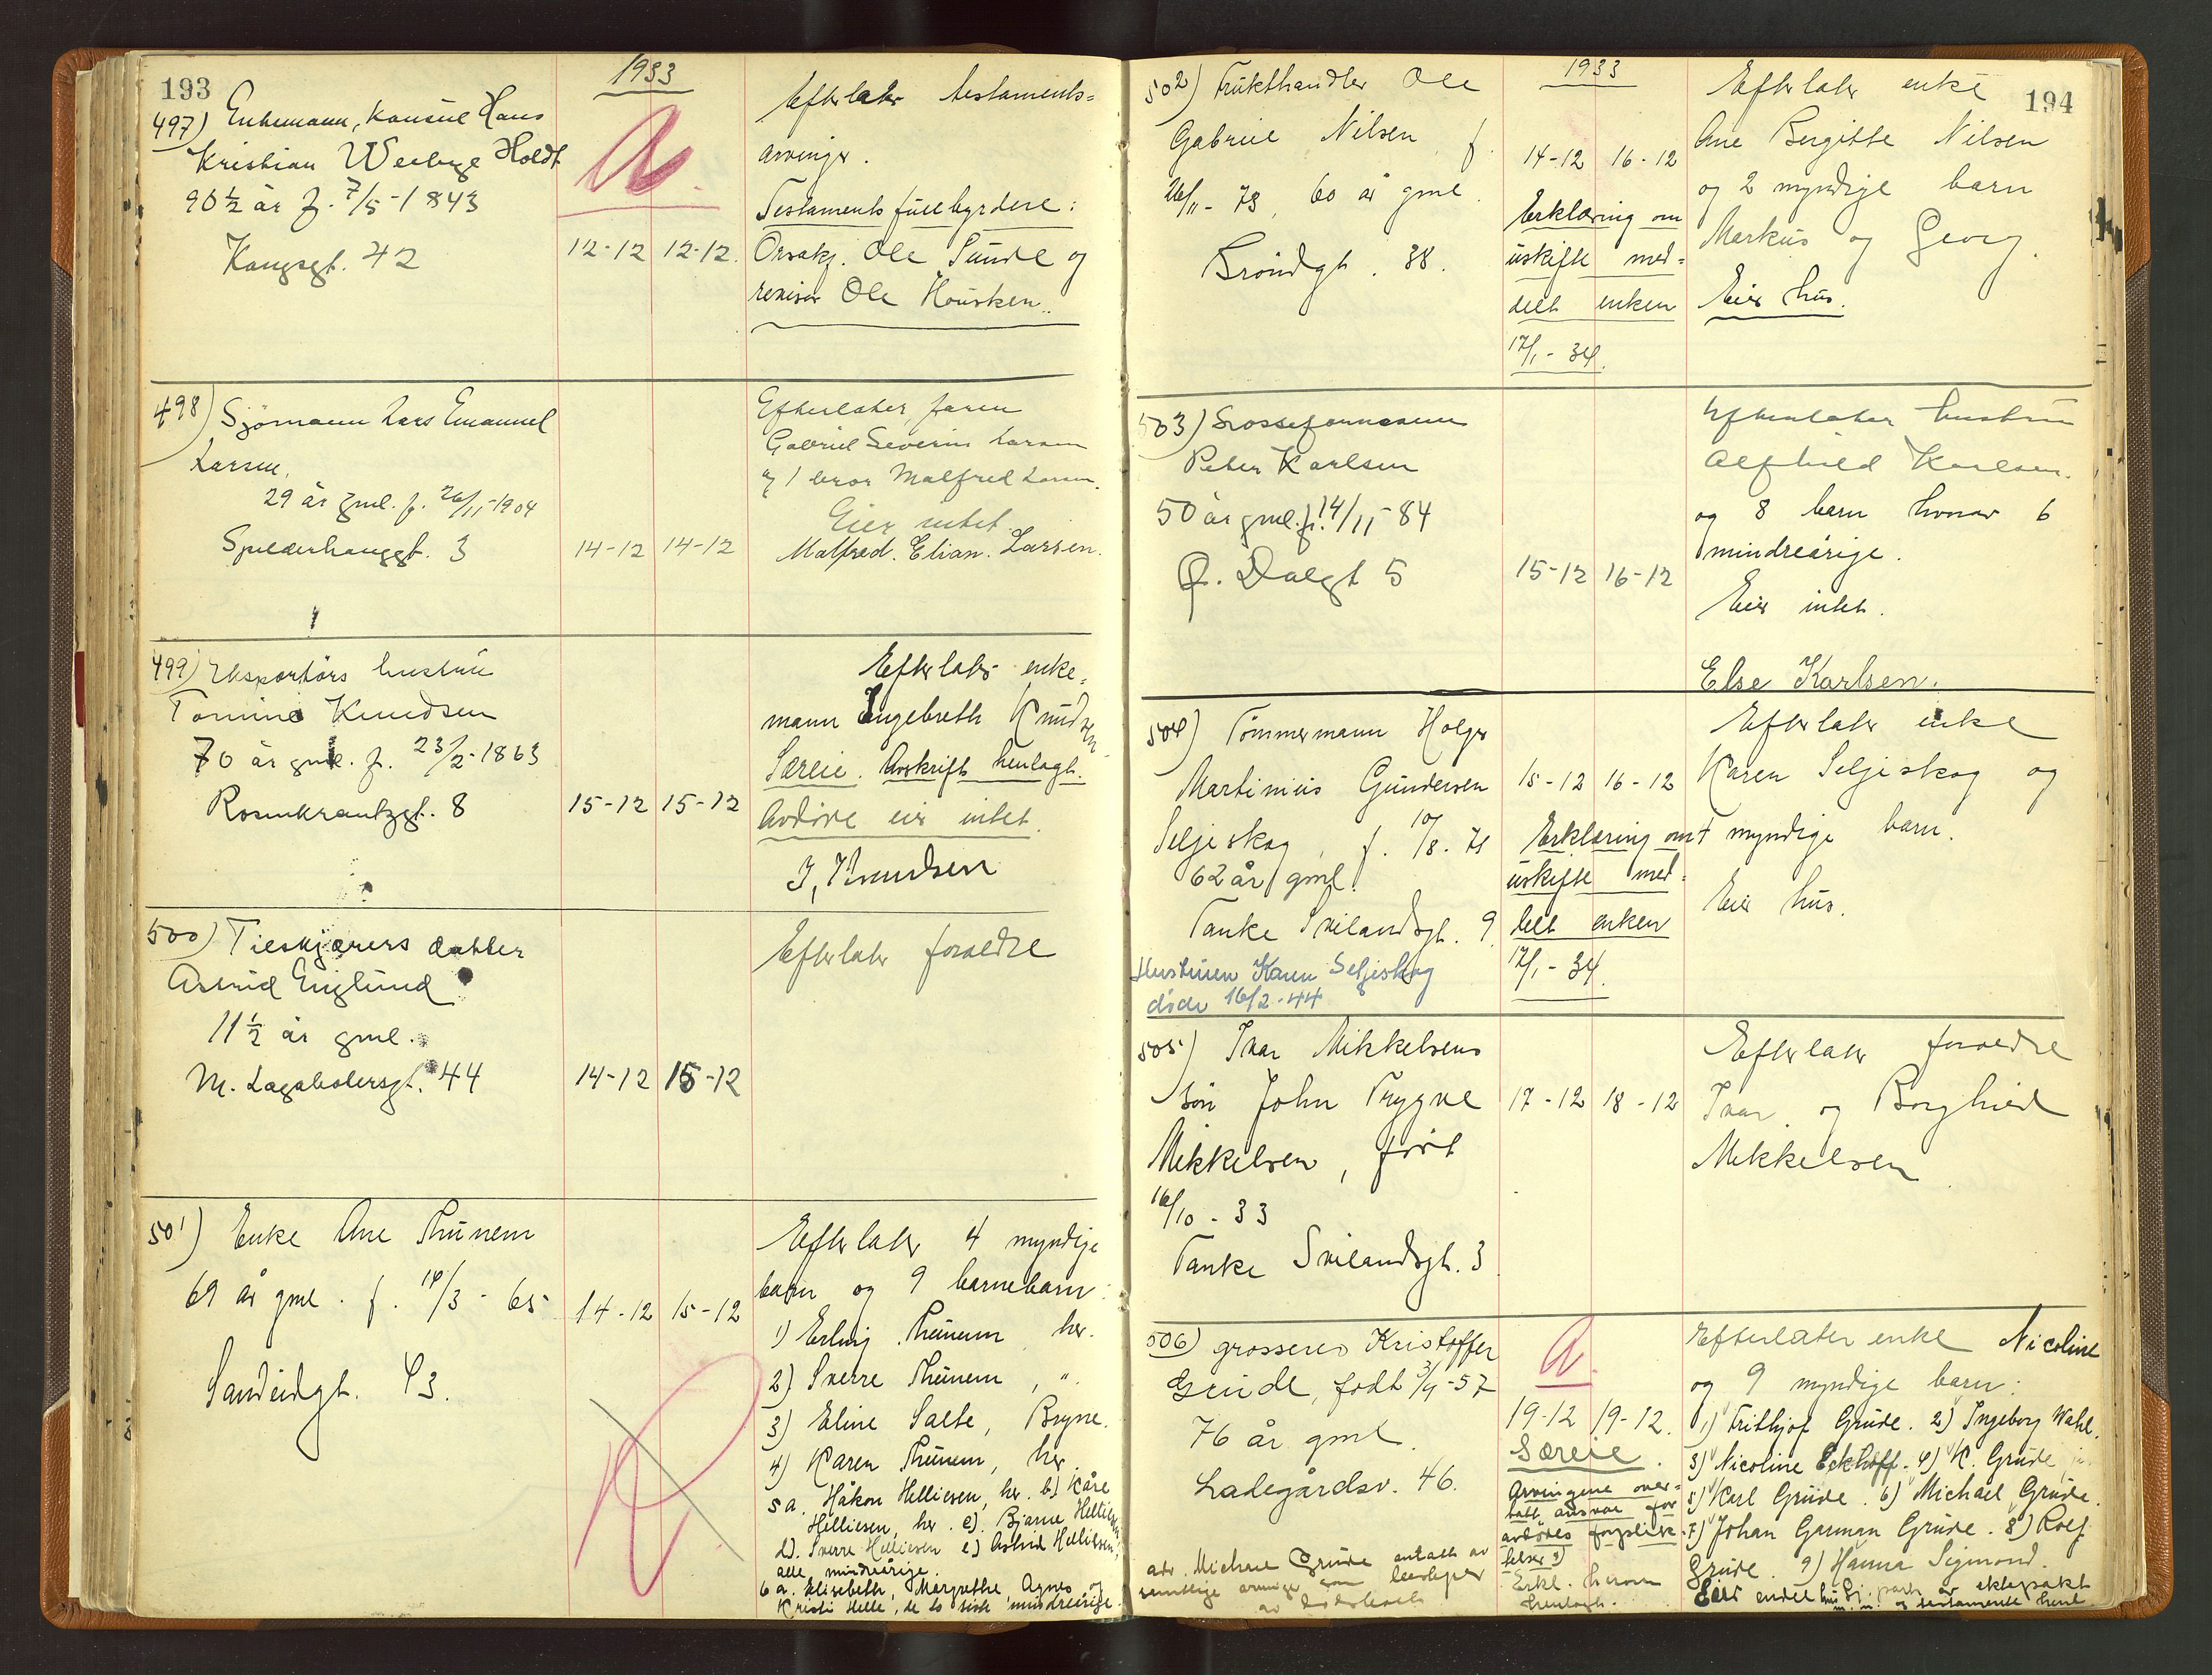 193
1933
497) Enkemann, Konsul Hans
Kristian Welhge Holdt
90½ år f. 7/5-1843
Kongsgt. 42
A.
12-12 12-12.
Efterlater testaments=
arvinger.
Testamentsfullbyrdere:
Orsakf. Ole Sunde og
revisor Ole Housken.
498) Sjømann Lars Emanuel
Larsen,
29 år gml. f. 26/11-1904
Spilderhauggt. 3
14-12 14-12
Efterlater faren
Gabriel Severin Larsen
og 1 bror Malfred Larsen.
Eier intet.
Malfred. Elian. Larsen.
499) Eksportørs hustru
Tomine Knudsen
70 år gml. f. 23/2-1863
Rosenkrantzgt. 8
15-12 15-12
Efterlater enke=
mann Ingebreth Knudsen
Særeie. Avskrift henlagt.
Avdøde eier intet.
I, Knudsen
500) Tilskjærers datter
Astrid Englund
11½ år gml.
M. Lagabølersgt. 44
14-12 15-12
Efterlater foreldre
501) Enke Ane Thunem
69 år gml. f. 14/3-65
Sandeidgt. 43.
14-12 15-12
Efterlater 4 myndige
barn og 9 barnebarn:
1) Erling Thunem her.
2) Sverre Thunem, "
3) Eline Salte, Bryne.
4) Karen Thunem, her.
5 a. Håkon Helliesen, her. b) Kåre
Helliesen, her. c). Bjarne Helliesen,
d). Sverre Helliesen e) Astrid Helliesen,
alle mindreårige.
6 a. Elisabeth, Margrethe, Agnes og
Kristi Helle, de to siste mindreårige.
194
1933
502) Frukthandler Ole
Gabriel Nilsen f.
26/11-73, 60 år gml.
Brøndgt. 38.
14-12 16-12
Erklæring om
uskifte med=
delt enken
17/1-34.
Efterlater enke
Ane Bergitte Nilsen
og 2 myndige barn
Markus og Georg.
Eier hus.
503) Grosseformann
Peter Karlsen
50 år gml. f. 14/11-84
Q. Dalgt 5
15-12 16-12
Efterlater hustru
Alfhild Karlsen.
og 8 barn hvorav 6
mindreårige.
Eier intet.
Else Karlsen.
504) Tømmermann Holger
Martinius Gundersen
Seljeskog, f. 10/8-71
62 år gml.
Tanke Svilandsgt. 9.
Hustruen Karen Seljeskog
døde 16/2-44
15-12 16-12
Erklæring om
uskifte med=
delt enken
17/1-34.
Efterlater enke
Karen Seljeskog og
7 myndige barn.
Eier hus.
505) Ivar Mikkelsens
søn John Trygve
Mikkelsen, født
16/10-33
Tanke Svilandsgt. 3
17-12 18-12
Efterlater foreldre
Ivar og Borghild
Mikkelsen
506) grosserer Kristoffer
Grude, født 3/4-57
76 år gml.
Ladegårdsv. 46.
adv. Michael Grude antatt av
samtlige arvinger som
A.
19-12 19-12.
Særeie.
Arvingene over=
tatt ansvar for
avdødes forplik=
telser
Erkl. herom
henlagt.
Efterlater enke Nicoline
og 9 myndige barn:
1) Frithjof Grude. 2) Ingeborg Wahl.
3) Nicoline Eckhoff. 4) K. Grude jr.
5) Karl Grude. 6) Michael Grude.
7) Johan Garman Grude. 8) Rolf
Grude. 9) Hanna Sigmond.